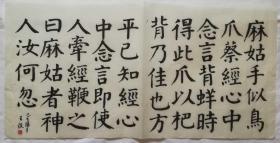 麻姑手似鳥
爪蔡經心中
念言背蛘時
得此爪以杷
背乃佳也方
平已知經心
中念言即使
人牽經鞭之
曰麻姑者神
人汝何忽